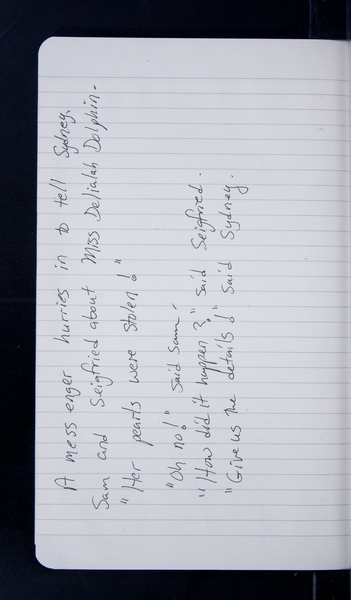 A messenger hurries in to tell Sydney,
Sam and Seigfried about Miss Delialah Dolphin.
"Her pearls were stolen!"
"Oh no!" said Sam.
"How did it happen?" said Seigfried.
"Give us the details!" said Sydney.